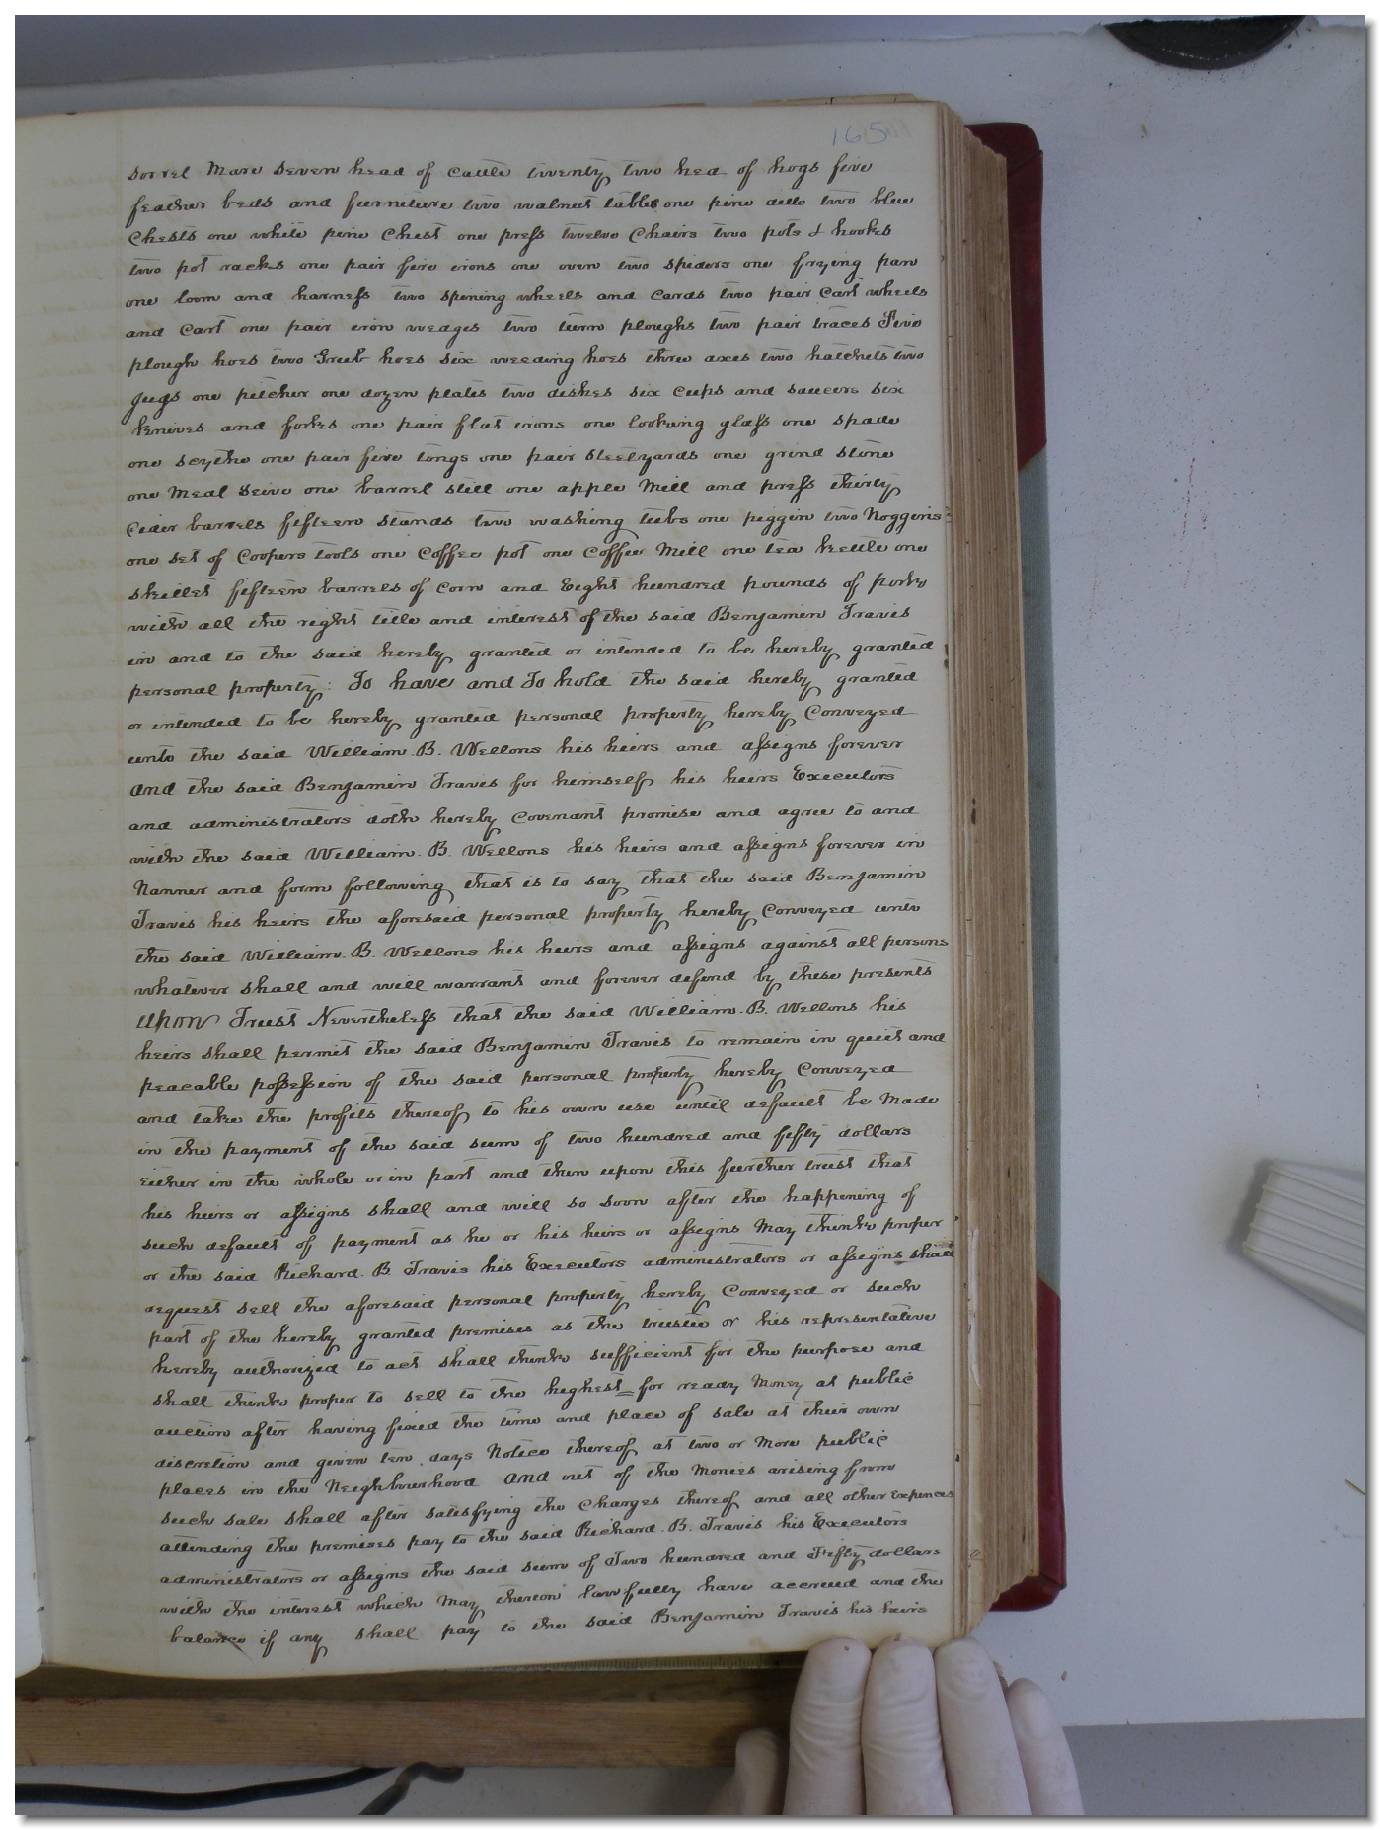 165
sorrel Mare seven head of Cattle twenty two hed of hogs five
feather beds and furniture two walnut tables one pine ditto two blue
Chests one white pine Chest one press twelve Chairs two pots & hookes
two pot racks one pair fire irons one oven two spiders one frying pan
one loom and harness two spining wheels and Cards two pair Cart wheels
and Cart one pair iron wedges two turn ploughs two pair traces Five
plough hoes two Grub hoes six weeding hoes three axes two hatchets two
Jugs one pitcher one dozen plates two dishes six Cups and saucers six
knives and forkes one pair flat irons one looking glass one spade
one scythe one pair fire tongs one pair steelyards one grind stone
one Meal Seive one barrel still one apple Mill and press thirty
Cider barrels fifteen stands two washing tubs one piggin two Noggins
one set of Coopers tools one Coffee pot one Coffee Mill one tea kettle one
skillet fifteen barrels of Corn and Eight hundred pounds of pork
with all the right title and interest of the said Benjamin Travis
in and to the said hereby granted or intended to be hereby granted
personal property: To have and To hold the said hereby granted
or intended to be hereby granted personal property hereby Conveyed
unto the said William. B. Wellons his heirs and assigns forever
and the said Benjamin Travis for himself his heirs Executors
and administrators doth hereby Covenant promise and agree to and
with the said William. B. Wellons his heirs and assigns forever in
Nanner and form following that is to say that the said Benjamin
Travis his heirs the aforesaid personal property hereby Conveyed unto
the said William. B. Wellons his heirs and assigns against all persons
whatever shall and will warrant and forever defend by these presents
upon Trust Nevertheless that the said William. B. Wellons his
heirs shall permit the said Benjamin Travis to remain in quiet and
peacable possession of the said personal property hereby Conveyed
and take the profits thereof to his own use until default be Made
in the payment of the said sum of two hundred and fifty dollars
either in the whole or in part and then upon this further trust that
his heirs or assigns shall and will so soon after the happening of
such default of payment as he or his heirs or assigns May think proper
or the said Richard. B. Travis his Executors administrators or assigns shall
request sell the aforesaid personal property hereby Conveyed or such
part of the hereby granted premises as the trustee or his representative
hereby authorized to act shall think sufficient for the purpose and
shall think proper to sell to the highest = for ready Money at public
auction after having fixed the time and place of sale at their own
discretion and given ten days Notice thereof at two or More public
places in the Neighbourhood and out of the Monies arising from
such sale shall after satisfying the Charges thereof and all other expences
attending the premises pay to the said Richard. B. Travis his Executors
administrators or assigns the said sum of Two hundred and Fifty dollars
with the interest which May thereon lawfully have accrued and the
balance if any shall pay to the said Benjamin Travis his heirs